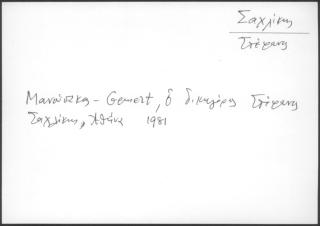 Σαχλίκης
Στέφανος
Μανούσακας - Gemert, ὁ δικηγόρος Στέφανος
Σαχλίκης, Ἀθήνα 1981